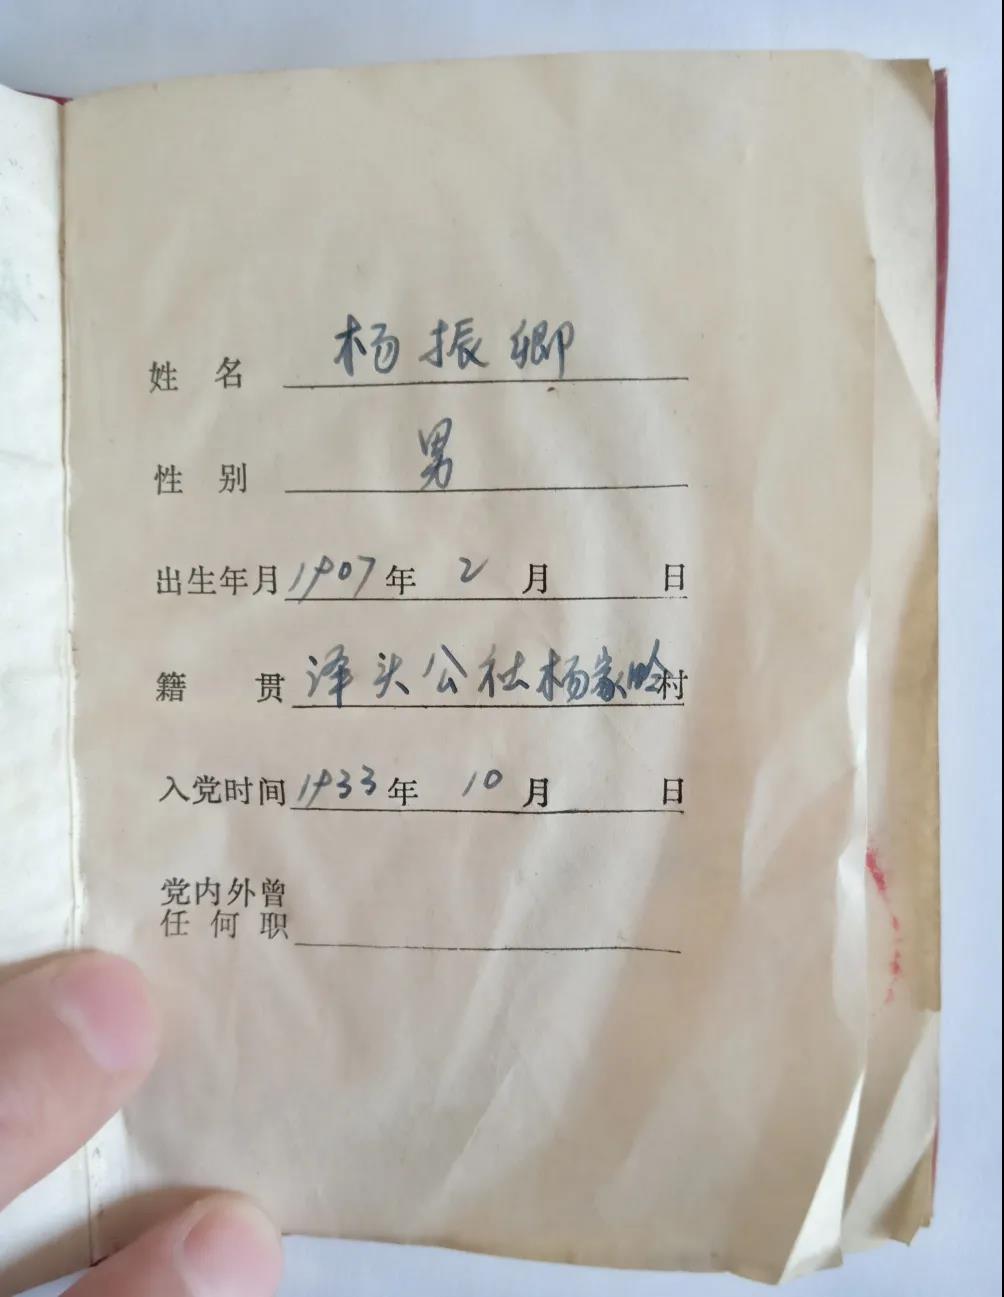 姓 名 杨振卿
性 别 男
出生年月 1907 年 2 月 日
籍 贯 泽头公社杨家岭村
入党时间 1933 年 10 月 日
党内外曾
任 何 职